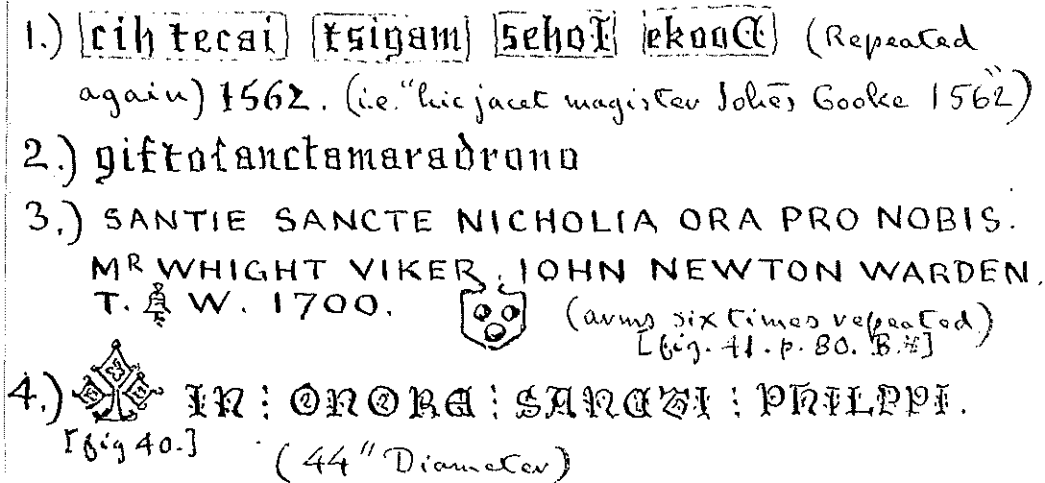 1.) cih tecai tsigam sehoI ekooC (Repeated
again) 1562. (i.e. "hic jacet magister Johēs Cooke 1562")
2.) giftofanctamaradrono
3.) SANTIE SANCTE NICHOLIA ORA PRO NOBIS.
MR WHIGHT VIKER. JOHN NEWTON WARDEN.
T. W. 1700. (arms six times repeated)
[fig. 41. p. 80. B.*]
4.) IN : ONORE : SANCTI : PHILPPI.
[fig 40.]
(44" Diameter)